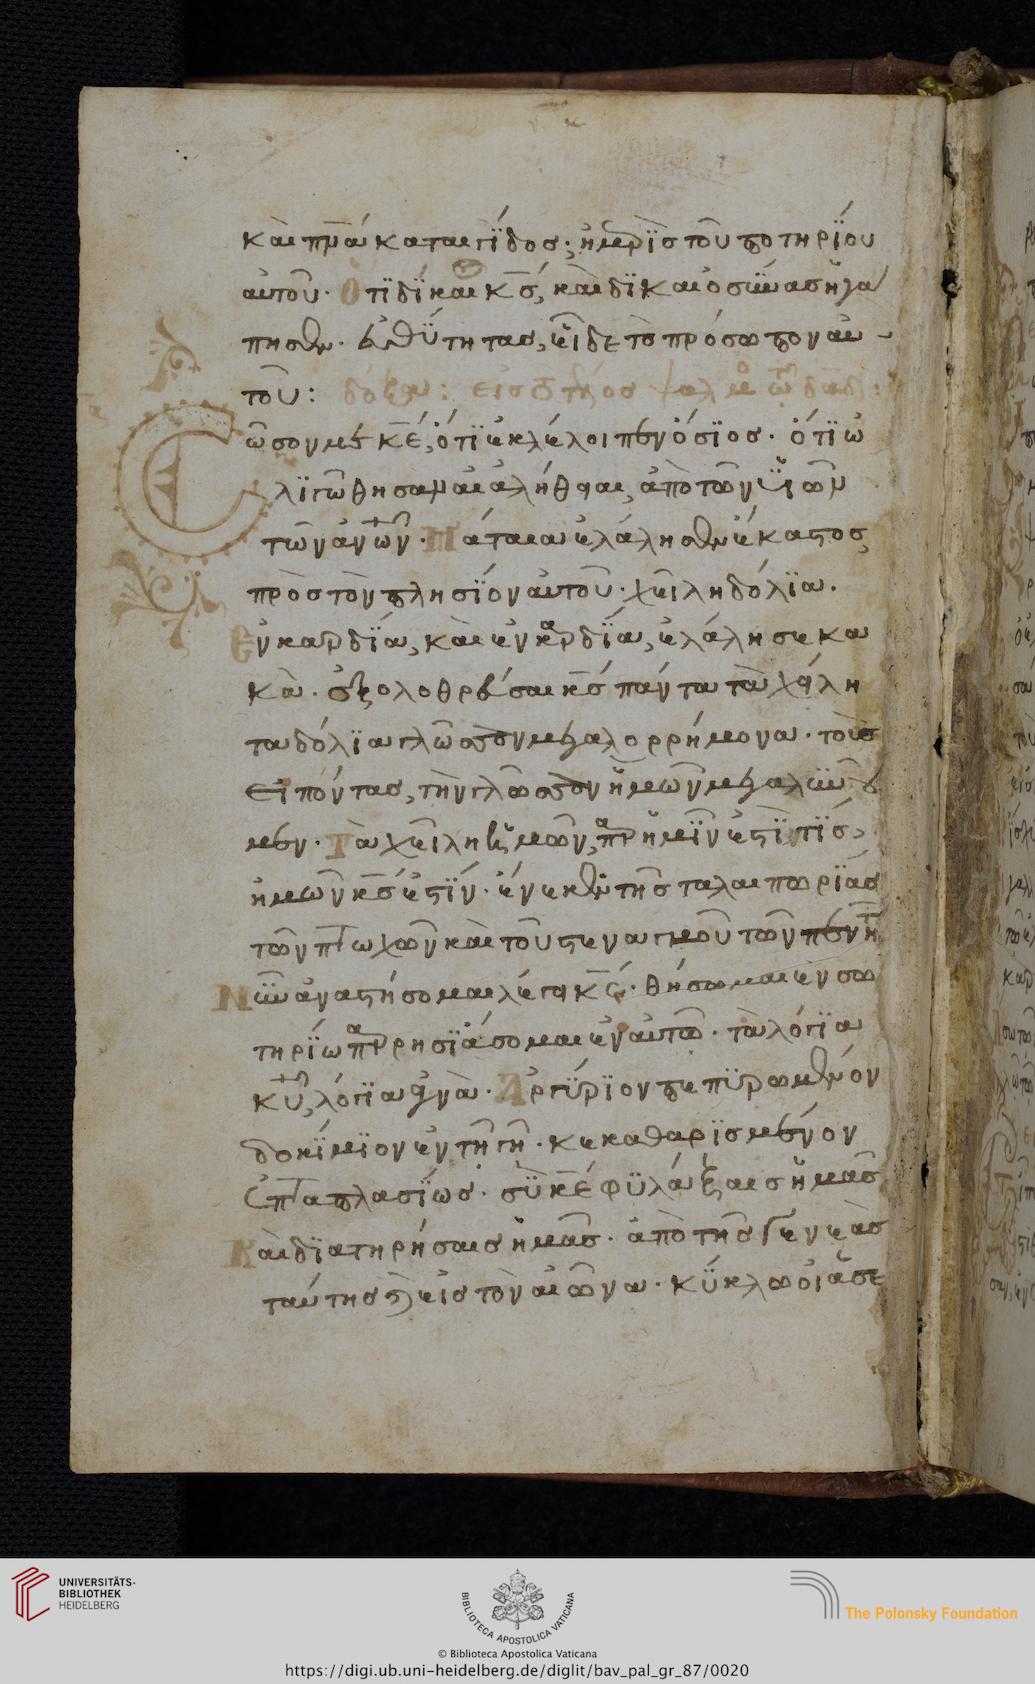 καὶ πνᾶ καταιγίδος· ἡ μερὶς τοῦ ποτηρίου
αὐτοῦ· Ὅτι δίκαιος κς, καὶ δικαιοσύνας ἠγά
πησεν· εὐθύτητας, εἶδε τὸ πρόσωπον αὐ
τοῦ: δόξαν: εἰς τὸ τέλος ψαλμὸς τῶ δαδ:
Σῶσον με κε, ὅτι ἐκλέλοιπεν ὅσιος· ὅτι ὠ
λιγώθησαν αἱ ἀλήθειαι, ἀπὸ τῶν υἱῶν
τῶν ἀνων· Μάταια ἐλάλησεν ἕκαστος
πρὸς τὸν πλησίον αὐτοῦ· χείλη δόλια·
Ἐν καρδία, καὶ ἐν καρδία, ἐλάλησε κα
κὰ· ἐξολοθρεύσαι κς πάντα τὰ χείλη
τὰ δόλια γλῶσσαν μεγαλορρήμονα· τοὺς
εἰπόντας, τὴν γλῶσσαν ἡμῶν μεγαλυνοῦ
μεν· Τὰ χείλη ἡμῶν, παρ ἡμῖν ἐστὶ τίς,
ἡμῶν κς ἐστίν· ἕνεκεν τῆς ταλαιπωρίας
τῶν πτωχῶν καὶ τοῦ στεναγμοῦ τῶν πενήτ
Νῦν ἀναστήσομαι λέγει κς· θήσωμαι ἐν σω
τηρίω παρρησιάσομαι ἐν αὐτῶ· τὰ λόγια
κυ, λόγια ἁγνὰ· Ἀργύριον πεπυρωμένον
δοκίμιον ἐν τῆ γῆ· κεκαθαρισμένον
ἑπταπλασίως· σὺ κε φυλάξαις ἡμᾶς,
Καὶ διατηρήσαις ἡμᾶς· ἀπὸ τῆς γενεὰς
ταύτης καὶ εἰς τὸν αἰῶνα· κύκλω οἱ ἀσε
UNIVERSITÄTS-
BIBLIOTHEK
HEIDELBERG
BIBLIOTECA APOSTOLICA VATICANA
The Polonsky Foundation
© Biblioteca Apostolica Vaticana
https://digi.ub.uni-heidelberg.de/diglit/bav_pal_gr_87/0020